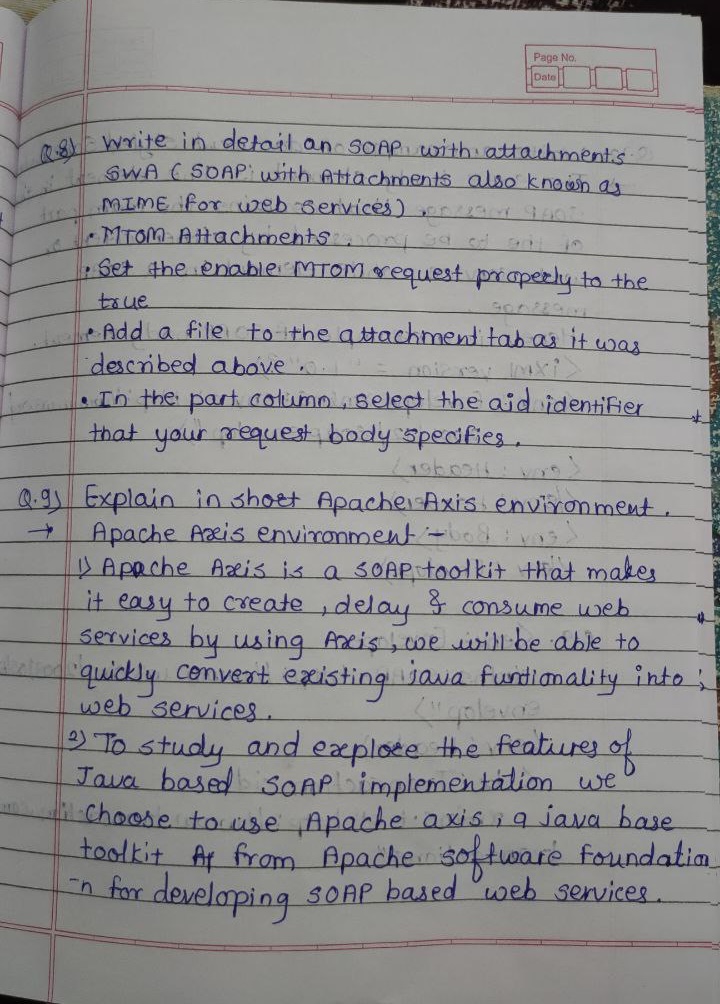 Page No.
Date
Q.8) Write in detail an SOAP with attachments
SWA ( SOAP with Attachments also known as
MIME for web services) .
• MTOM Attachments .
• Set the enable MTOM request properly to the
true
• Add a file to the attachment tab as it was
described above .
• In the part column, select the aid identifier
that your request body specifies .
Q.9) Explain in short Apache Axis environment .
→ Apache Axis environment :-
1) Apache Axis is a SOAP toolkit that makes
it easy to create , delay & consume web
services by using Axis , we will be able to
quickly convert existing java funtionality into
web services .
2) To study and explore the features of
Java based SOAP implementation we
choose to use Apache axis , a java base
toolkit from Apache software foundatio
-n for developing SOAP based web services .